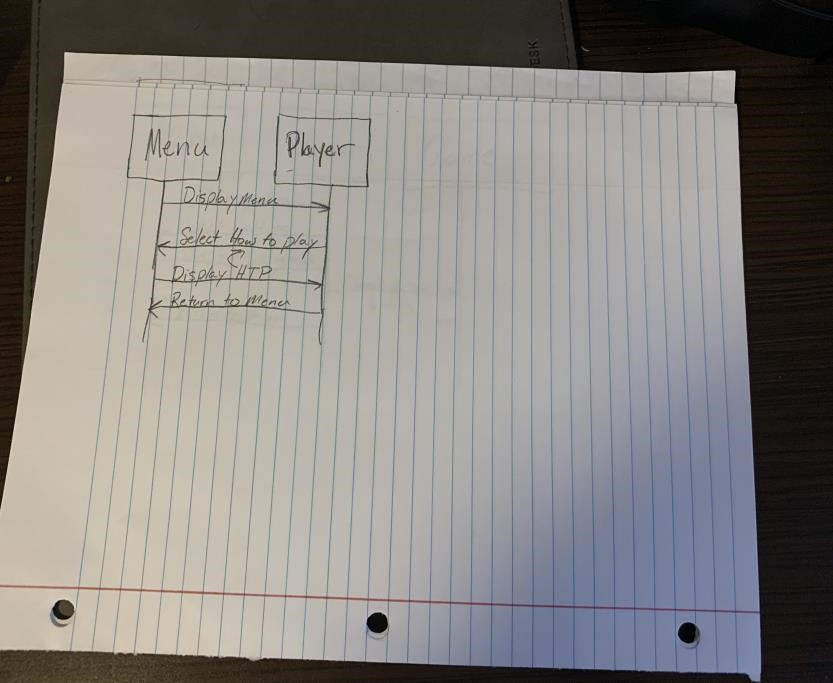 ESK
Menu
Player
Display Menu
Select How to play
Display HTP
Return to Menu